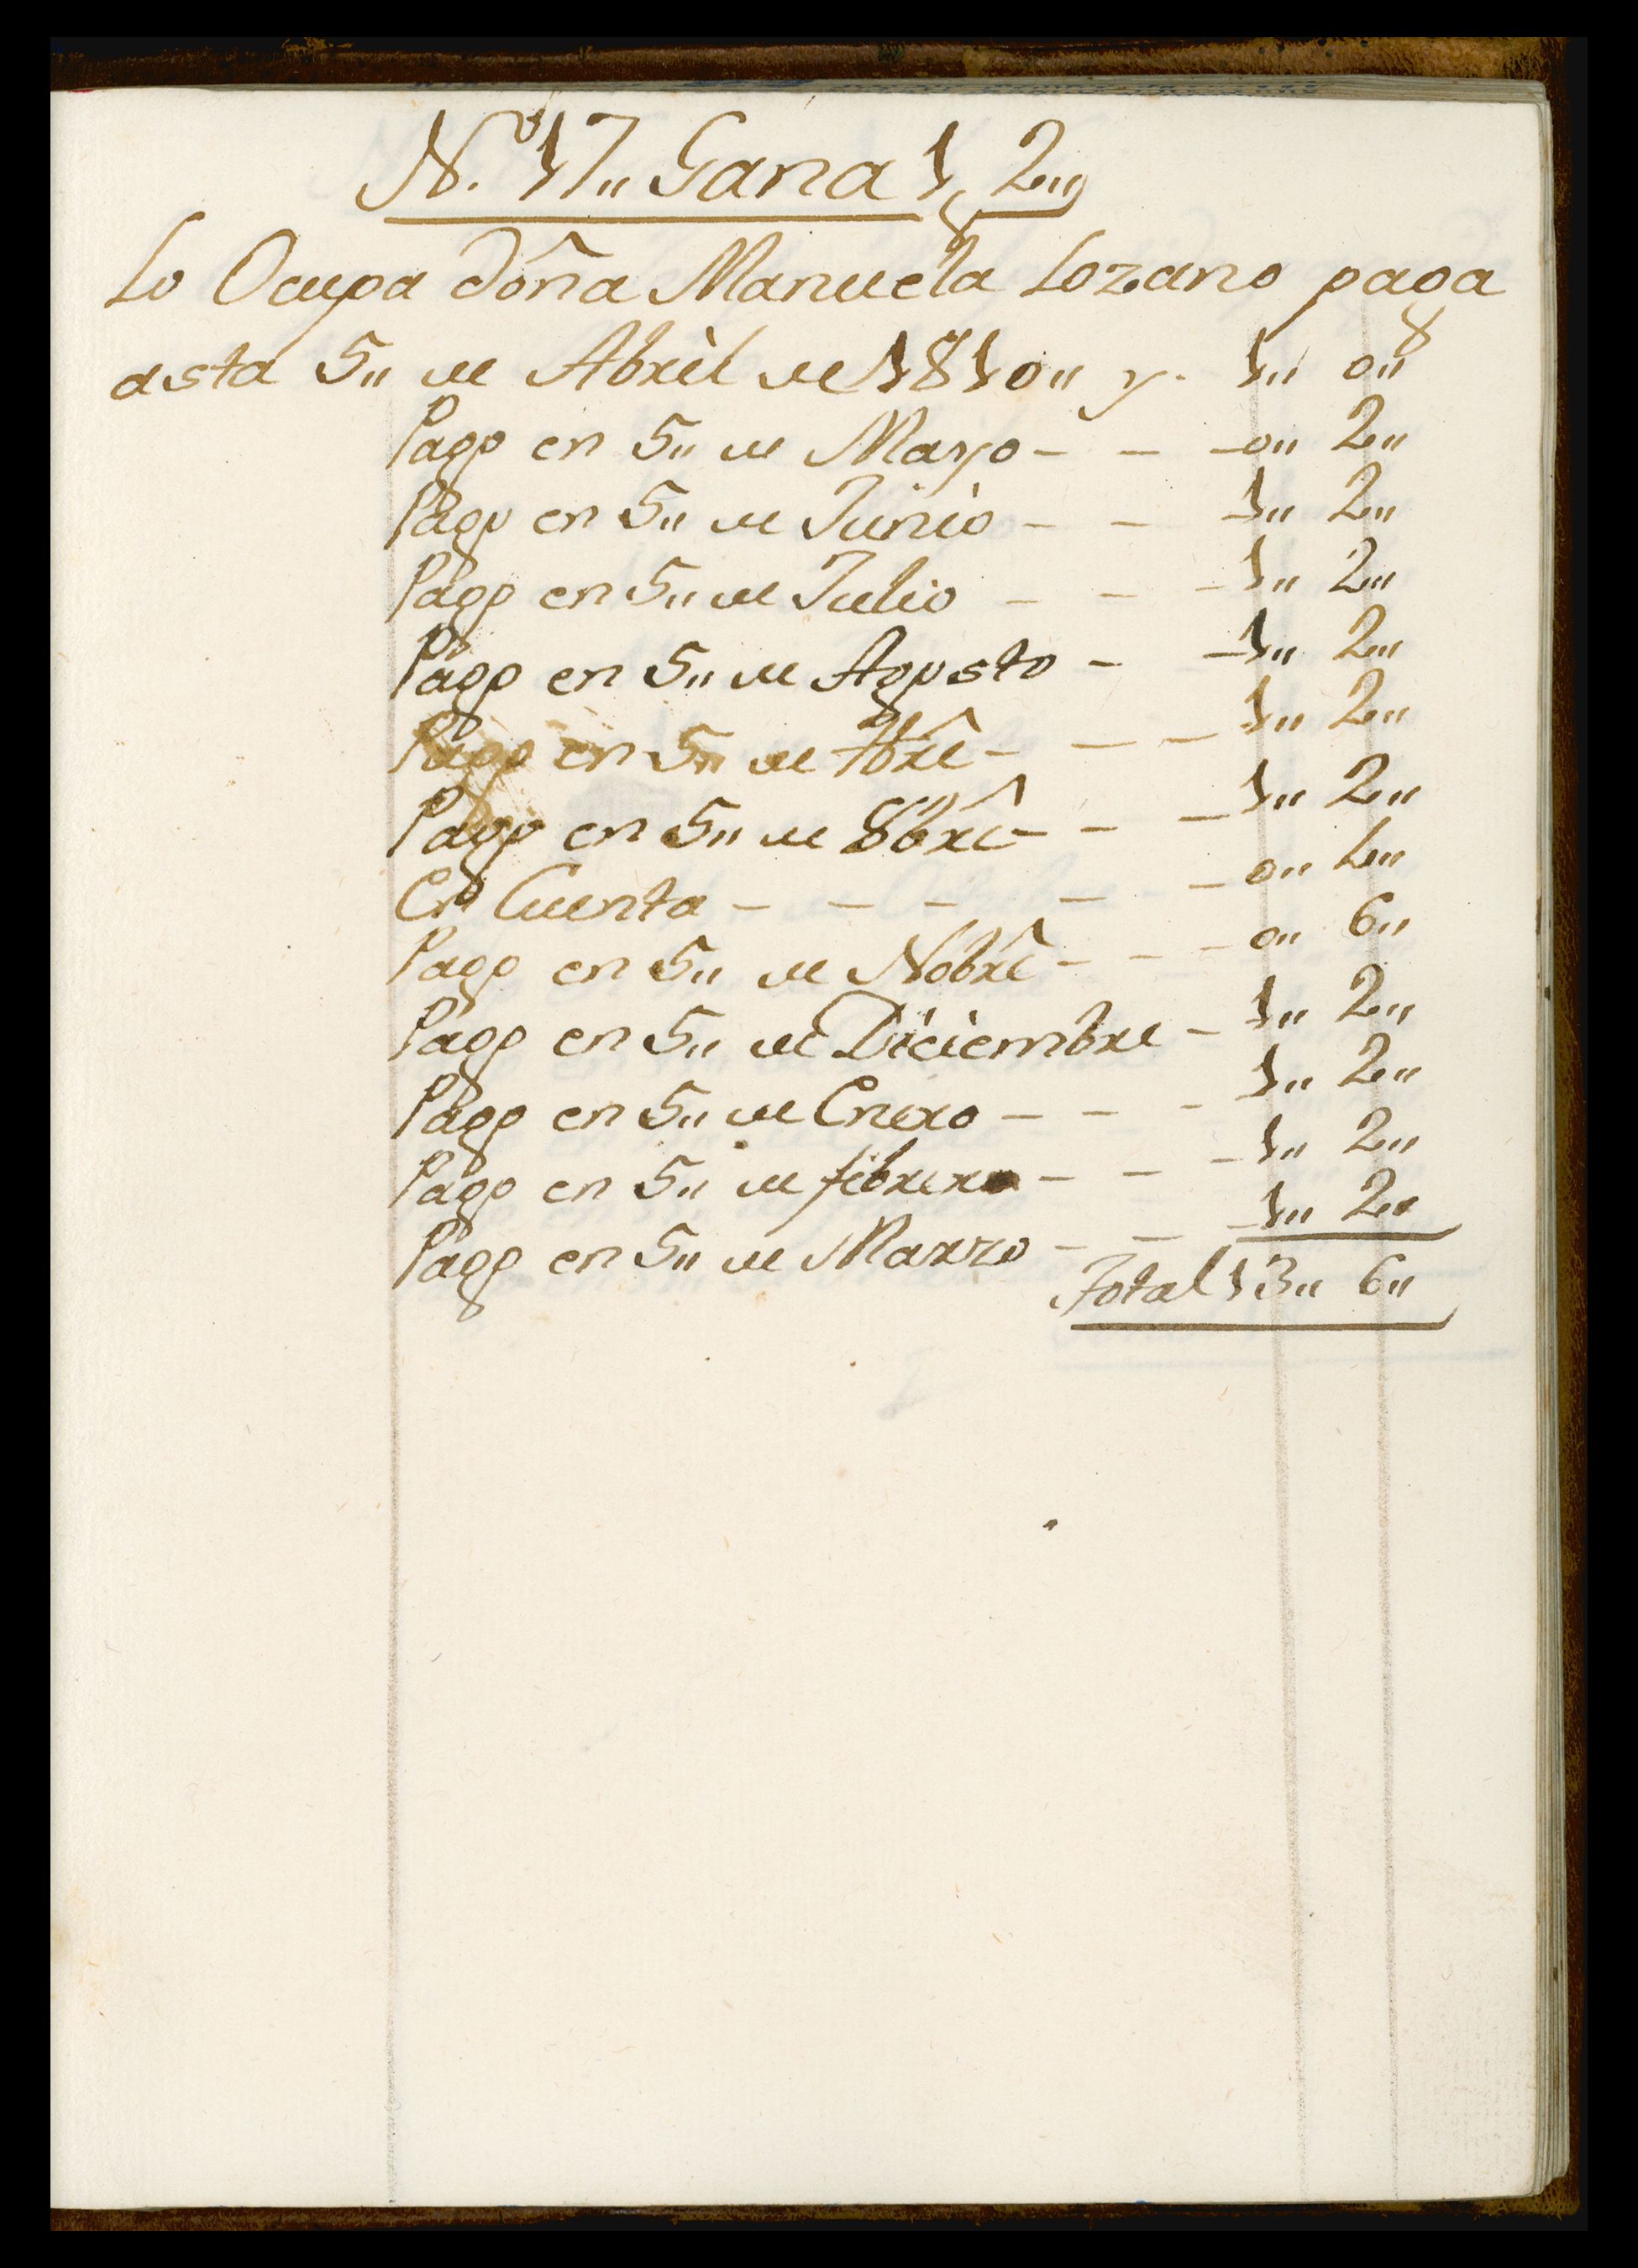 N.º 17,, Gana 1, 2,,
Lo Ocupa doña Manuela Lozano paga
asta 5,, de Abril de 1810,, y. 1,, 0,,
Pagó en 5,, de Mayo - - - 0,, 2,,
Pagó en 5,, de Junio - - - 1,, 2,,
Pagó en 5,, de Julio - - - 1,, 2,,
Pagó en 5,, de Agosto - - 1,, 2,,
Pagó en 5,, de 7brê - - - 1,, 2,,
Pagó en 5,, de 8brê - - - 1,, 2,,
En Cuenta - - - - - 0,, 4,,
Pagó en 5,, de Nobrê - - - 0,, 6,,
Pagó en 5,, de Diciembre - 1,, 2,,
Pagó en 5,, de Enero - - - 1,, 2,,
Pagó en 5,, de febrero - - - 1,, 2,,
Pagó en 5,, de Marzo - - - 1,, 2,,
Total 13,, 6,,